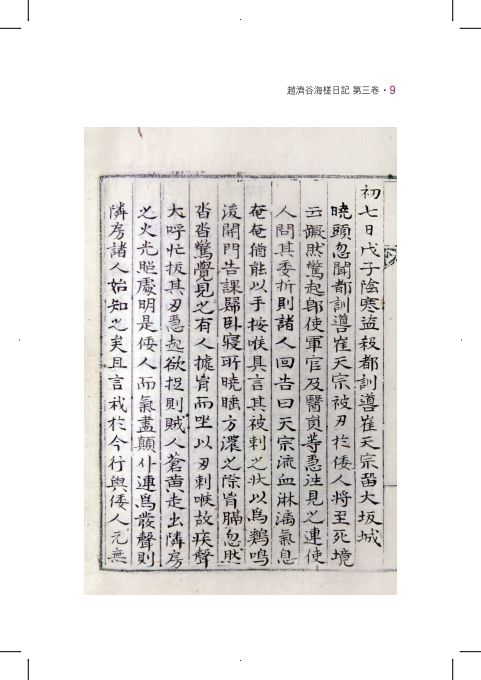 趙濟谷海槎日記 第三卷 • 9
初七日戊子陰寒盜殺都訓導崔天宗留大坂城
曉頭忽聞都訓導崔天宗被刃於倭人將至死境
云飜然驚起卽使軍官及醫員等急往見之連使
人問其委折則諸人回告曰天宗流血淋漓氣息
奄奄猶能以手按喉具言其被刺之狀以爲鷄鳴
後開門告課歸臥寢所曉睡方濃之際胷膈忽然
沓沓驚覺見之有人據胷而坐以刃刺喉故疾聲
大呼忙拔其刃急起欲捉則賊人蒼黃走出隣房
之火光照處明是倭人而氣盡顚仆連爲發聲則
隣房諸人始知之矣且言我於今行與倭人元無